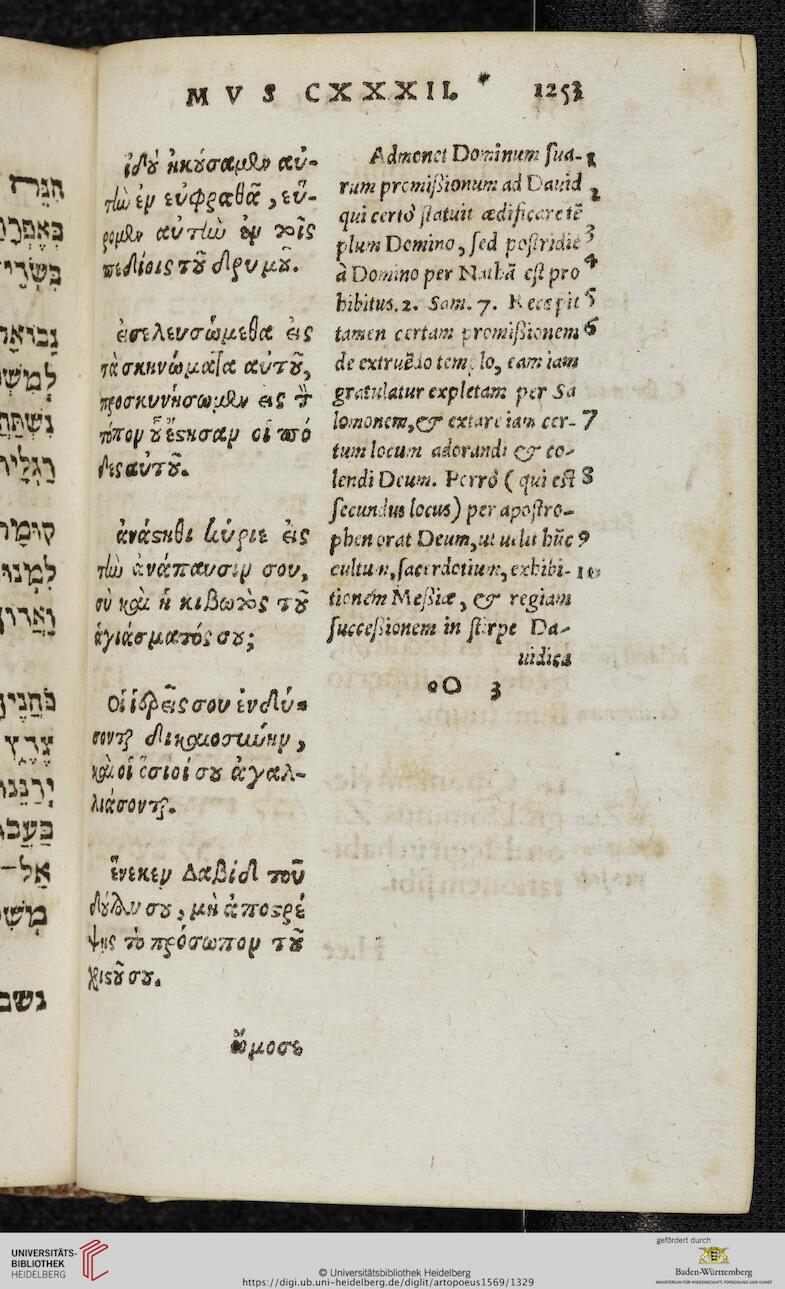 MVS CXXXII. * 1253
ἰδοὺ ἠκούσαμεν αὐ-
τὴν ἐν εὐφραθᾶ, εὕ-
ρομεν αὐτὴν ἐν τοῖς
πεδίοις τοῦ δρυμοῦ.
εἰσελευσώμεθα εἰς
τὰ σκηνώματα αὐτοῦ,
προσκυνήσωμεν εἰς τὸν
τόπον οὗ ἔστησαν οἱ πό
δες αὐτοῦ.
ἀνάστηθι κύριε εἰς
τὴν ἀνάπαυσιν σου,
σὺ καὶ ἡ κιβωτὸς τοῦ
ἁγιάσματός σου;
Οἱ ἱερεῖς σου ἐνδύ-
σονται δικαιοσύνην,
καὶ οἱ ὅσιοί σου ἀγαλ-
λιάσονται.
ἕνεκεν Δαβὶδ τοῦ
δούλου σου, μὴ ἀποστρέ
ψῃς τὸ πρόσωπον τοῦ
χριστοῦ σου.
ὤμοσε
Admonet Dominum sua- 1
rum promißionum ad Dauid 2
qui certò statuit ædificare tē
plum Domino, sed postridie 3
à Domino per Nathā est pro 4
hibitus. 2. Sam. 7. Recepit 5
tamen certam promißionem 6
de extruēdo templo, eam iam
gratulatur expletam per Sa
lomonem, & extare iam cer- 7
tum locum adorandi & co-
lendi Deum. Porrò (qui est 8
secundus locus) per apostro-
phen orat Deum, ut uelit hūc 9
cultum, sacerdotium, exhibi- 10
tionem Meßiæ, & regiam
succeßionem in stirpe Da-
uidica
oO 3
חִנֵּה
בְאֶפְרָ
בִּשְׂדֵי
נָבוֹאָה
רַגְלָיו
קוּמָה
כֹּהֲנֶיךָ
צֶדֶק
יְרַנֵּנוּ
בַּעֲבוּ
אַל־
מְשִׁי
נשב
UNIVERSITÄTS-
BIBLIOTHEK
HEIDELBERG
© Universitätsbibliothek Heidelberg
https://digi.ub.uni-heidelberg.de/diglit/artopoeus1569/1329
gefördert durch
Baden-Württemberg
MINISTERIUM FÜR WISSENSCHAFT, FORSCHUNG UND KUNST